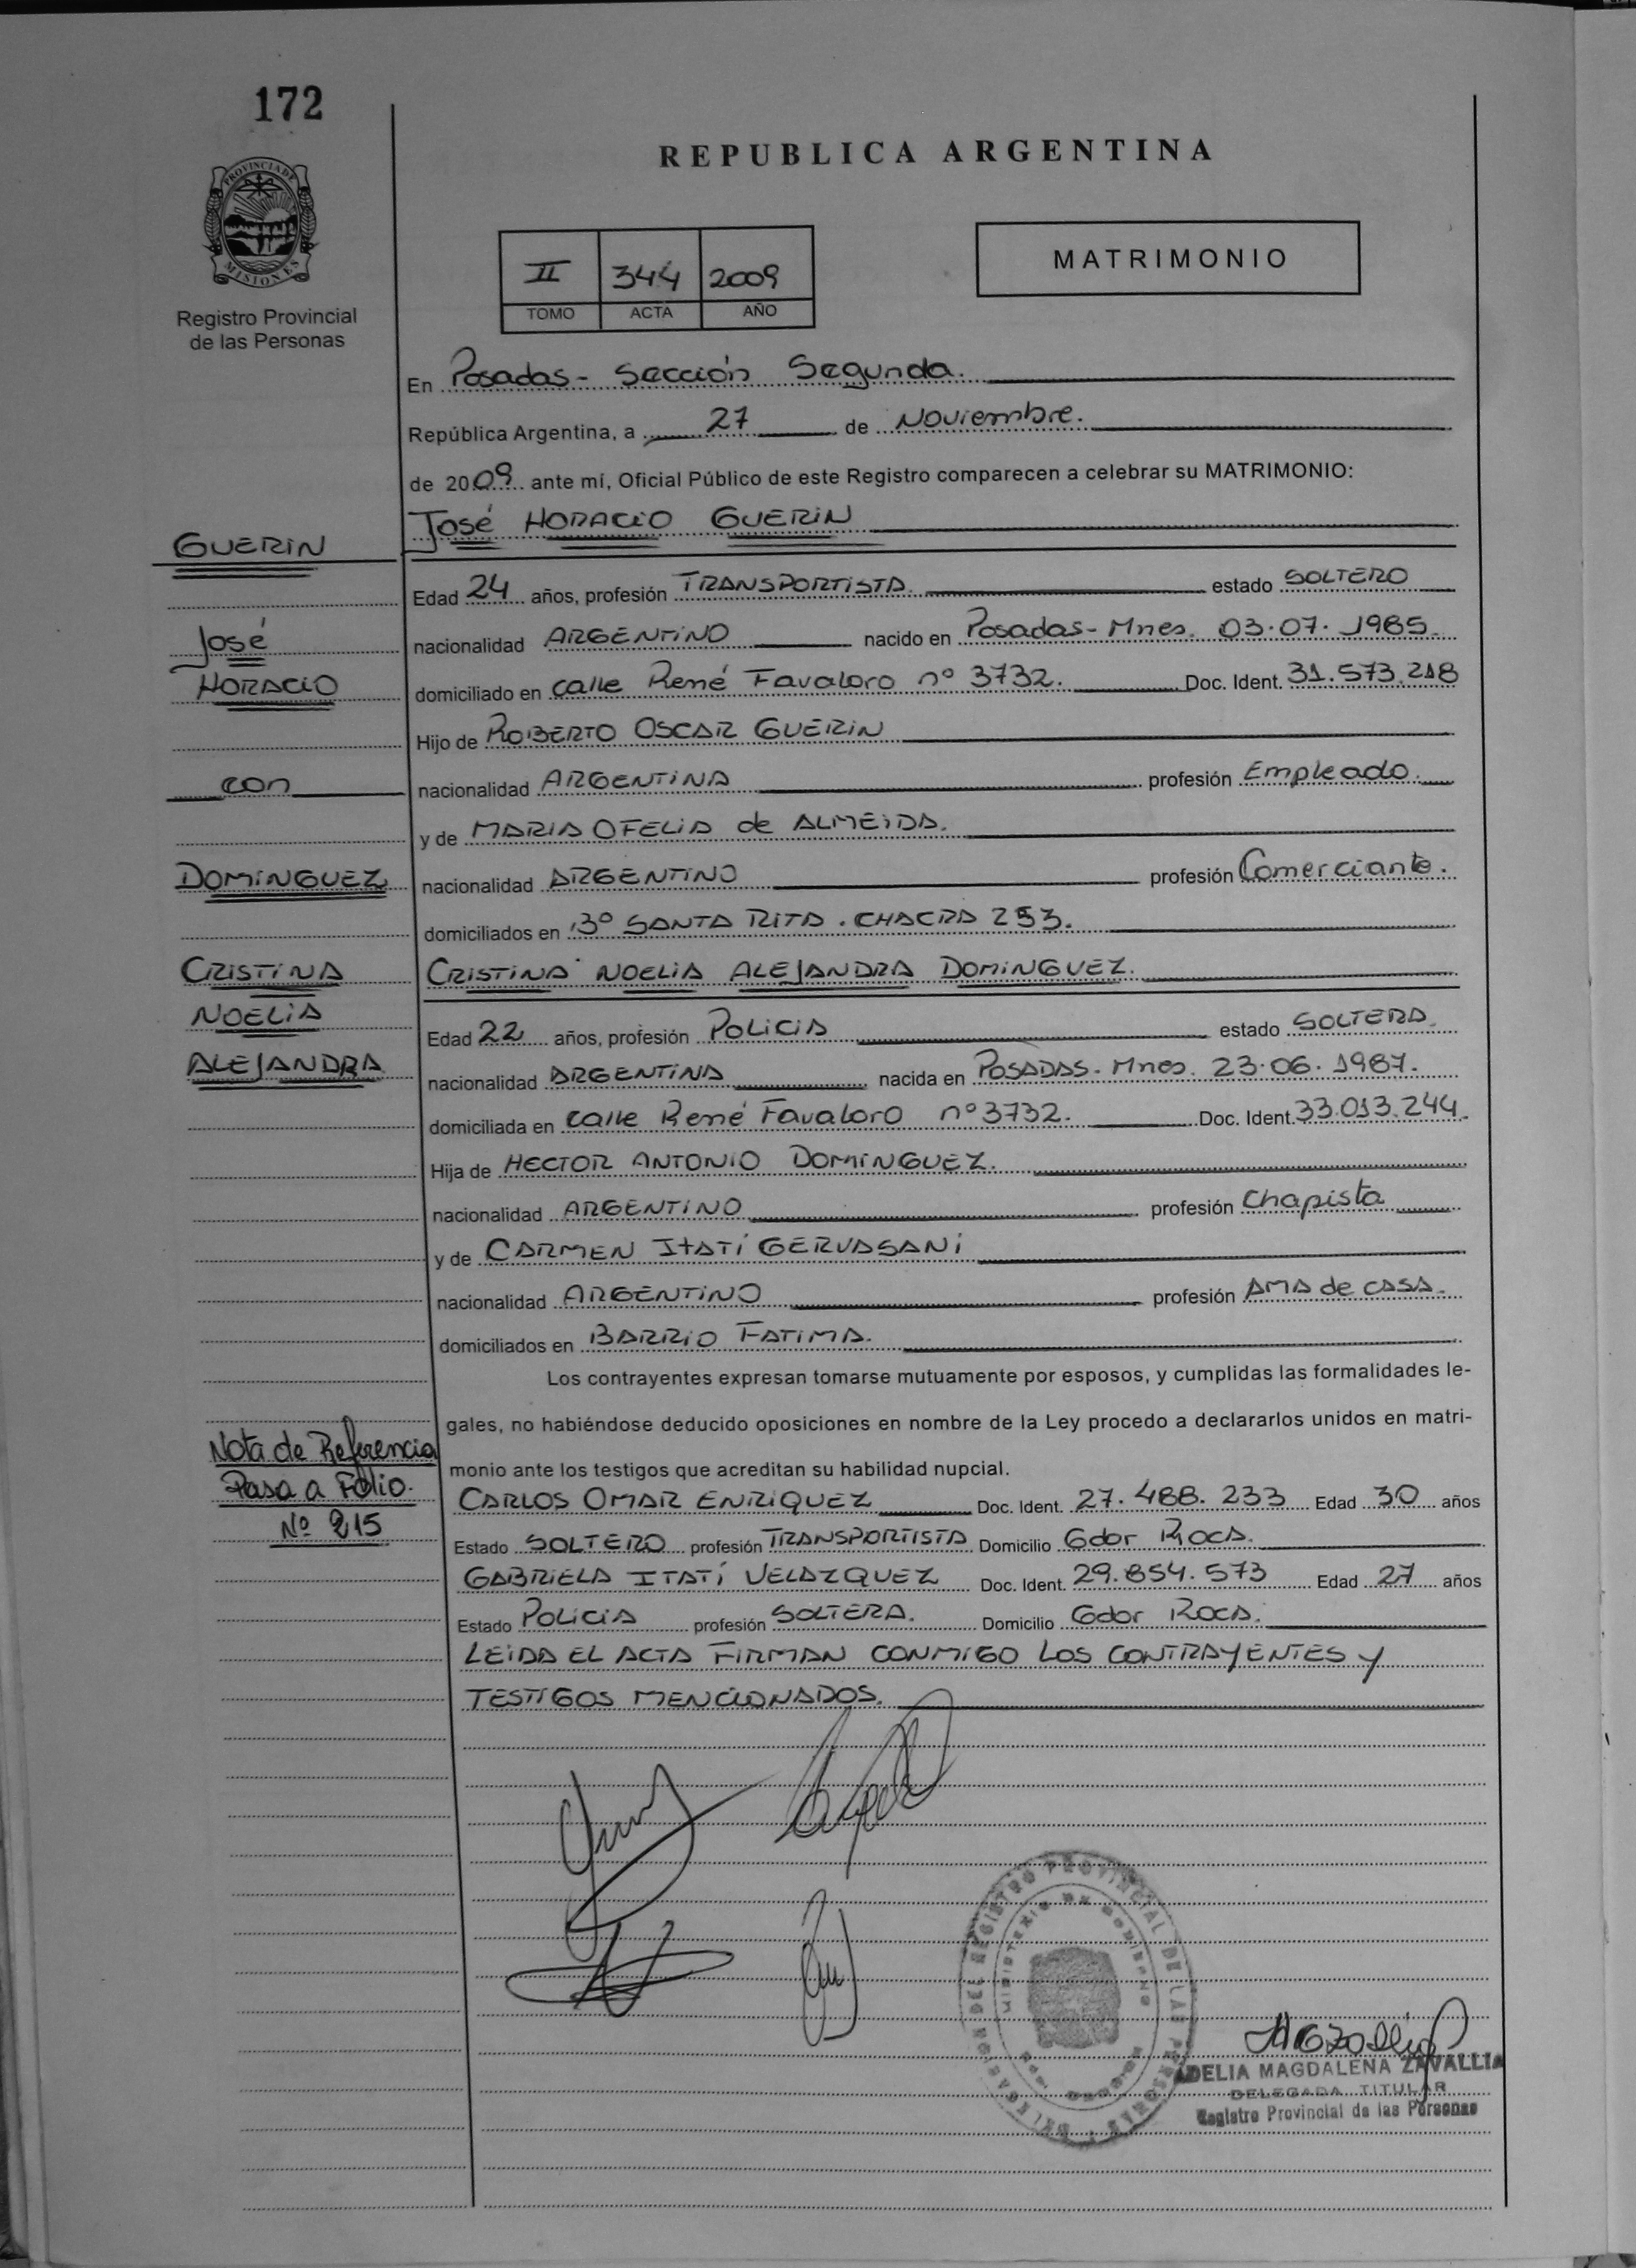 172
PROVINCIA DE
MISIONES
Registro Provincial
de las Personas
REPUBLICA ARGENTINA
II 344 2009
TOMO ACTA AÑO
MATRIMONIO
En Posadas - Sección Segunda.
República Argentina, a 27 de Noviembre.
de 2009 ante mí, Oficial Público de este Registro comparecen a celebrar su MATRIMONIO:
José HORACIO GUERIN
GUERIN
Edad 24 años, profesión TRANSPORTISTA. estado SOLTERO
José
nacionalidad ARGENTINO nacido en Posadas - Mnes. 03.07.1985.
HORACIO
domiciliado en calle René Favaloro nº 3732. Doc. Ident. 31.573.218
Hijo de ROBERTO OSCAR GUERIN
con
nacionalidad ARGENTINA profesión Empleado.
y de MARIA OFELIA de ALMEIDA.
DOMINGUEZ
nacionalidad ARGENTINO profesión Comerciante.
domiciliados en Bº SANTA RITA. CHACRA 253.
CRISTINA
CRISTINA NOELIA ALEJANDRA DOMINGUEZ.
NOELIA
Edad 22 años, profesión POLICIA estado SOLTERA.
ALEJANDRA
nacionalidad ARGENTINA nacida en POSADAS - Mnes. 23.06.1987.
domiciliada en calle René Favaloro nº 3732. Doc. Ident. 33.013.244.
Hija de HECTOR ANTONIO DOMINGUEZ.
nacionalidad ARGENTINO profesión Chapista
y de CARMEN ITATÍ GERVASANI
nacionalidad ARGENTINO profesión AMA de CASA.
domiciliados en BARRIO FATIMA.
Los contrayentes expresan tomarse mutuamente por esposos, y cumplidas las formalidades le-
gales, no habiéndose deducido oposiciones en nombre de la Ley procedo a declararlos unidos en matri-
monio ante los testigos que acreditan su habilidad nupcial.
Nota de Referencia
Pasa a Folio.
Nº 215
CARLOS OMAR ENRIQUEZ Doc. Ident. 27.488.233 Edad 30 años
Estado SOLTERO profesión TRANSPORTISTA Domicilio Gdor ROCA.
GABRIELA ITATÍ VELAZQUEZ Doc. Ident. 29.854.573 Edad 27 años
Estado POLICIA profesión SOLTERA. Domicilio Gdor ROCA.
LEIDA EL ACTA FIRMAN CONMIGO LOS CONTRAYENTES Y
TESTIGOS MENCIONADOS.
REGISTRO PROVINCIAL DE LAS PERSONAS
MINISTERIO DE GOBIERNO
ADELIA MAGDALENA ZAVALLIA
DELEGADA TITULAR
Registro Provincial de las Personas